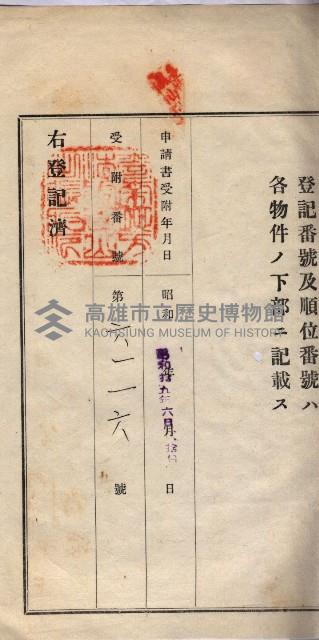 登記番號及順位番號ハ
各物件ノ下部ニ記載ス
申請書受附年月日 昭和 年 月 日
昭和拾九年六月 拾
受附番號 第 六一一六 號
右登記濟
高雄市立歷史博物館
KAOHSIUNG MUSEUM OF HISTORY